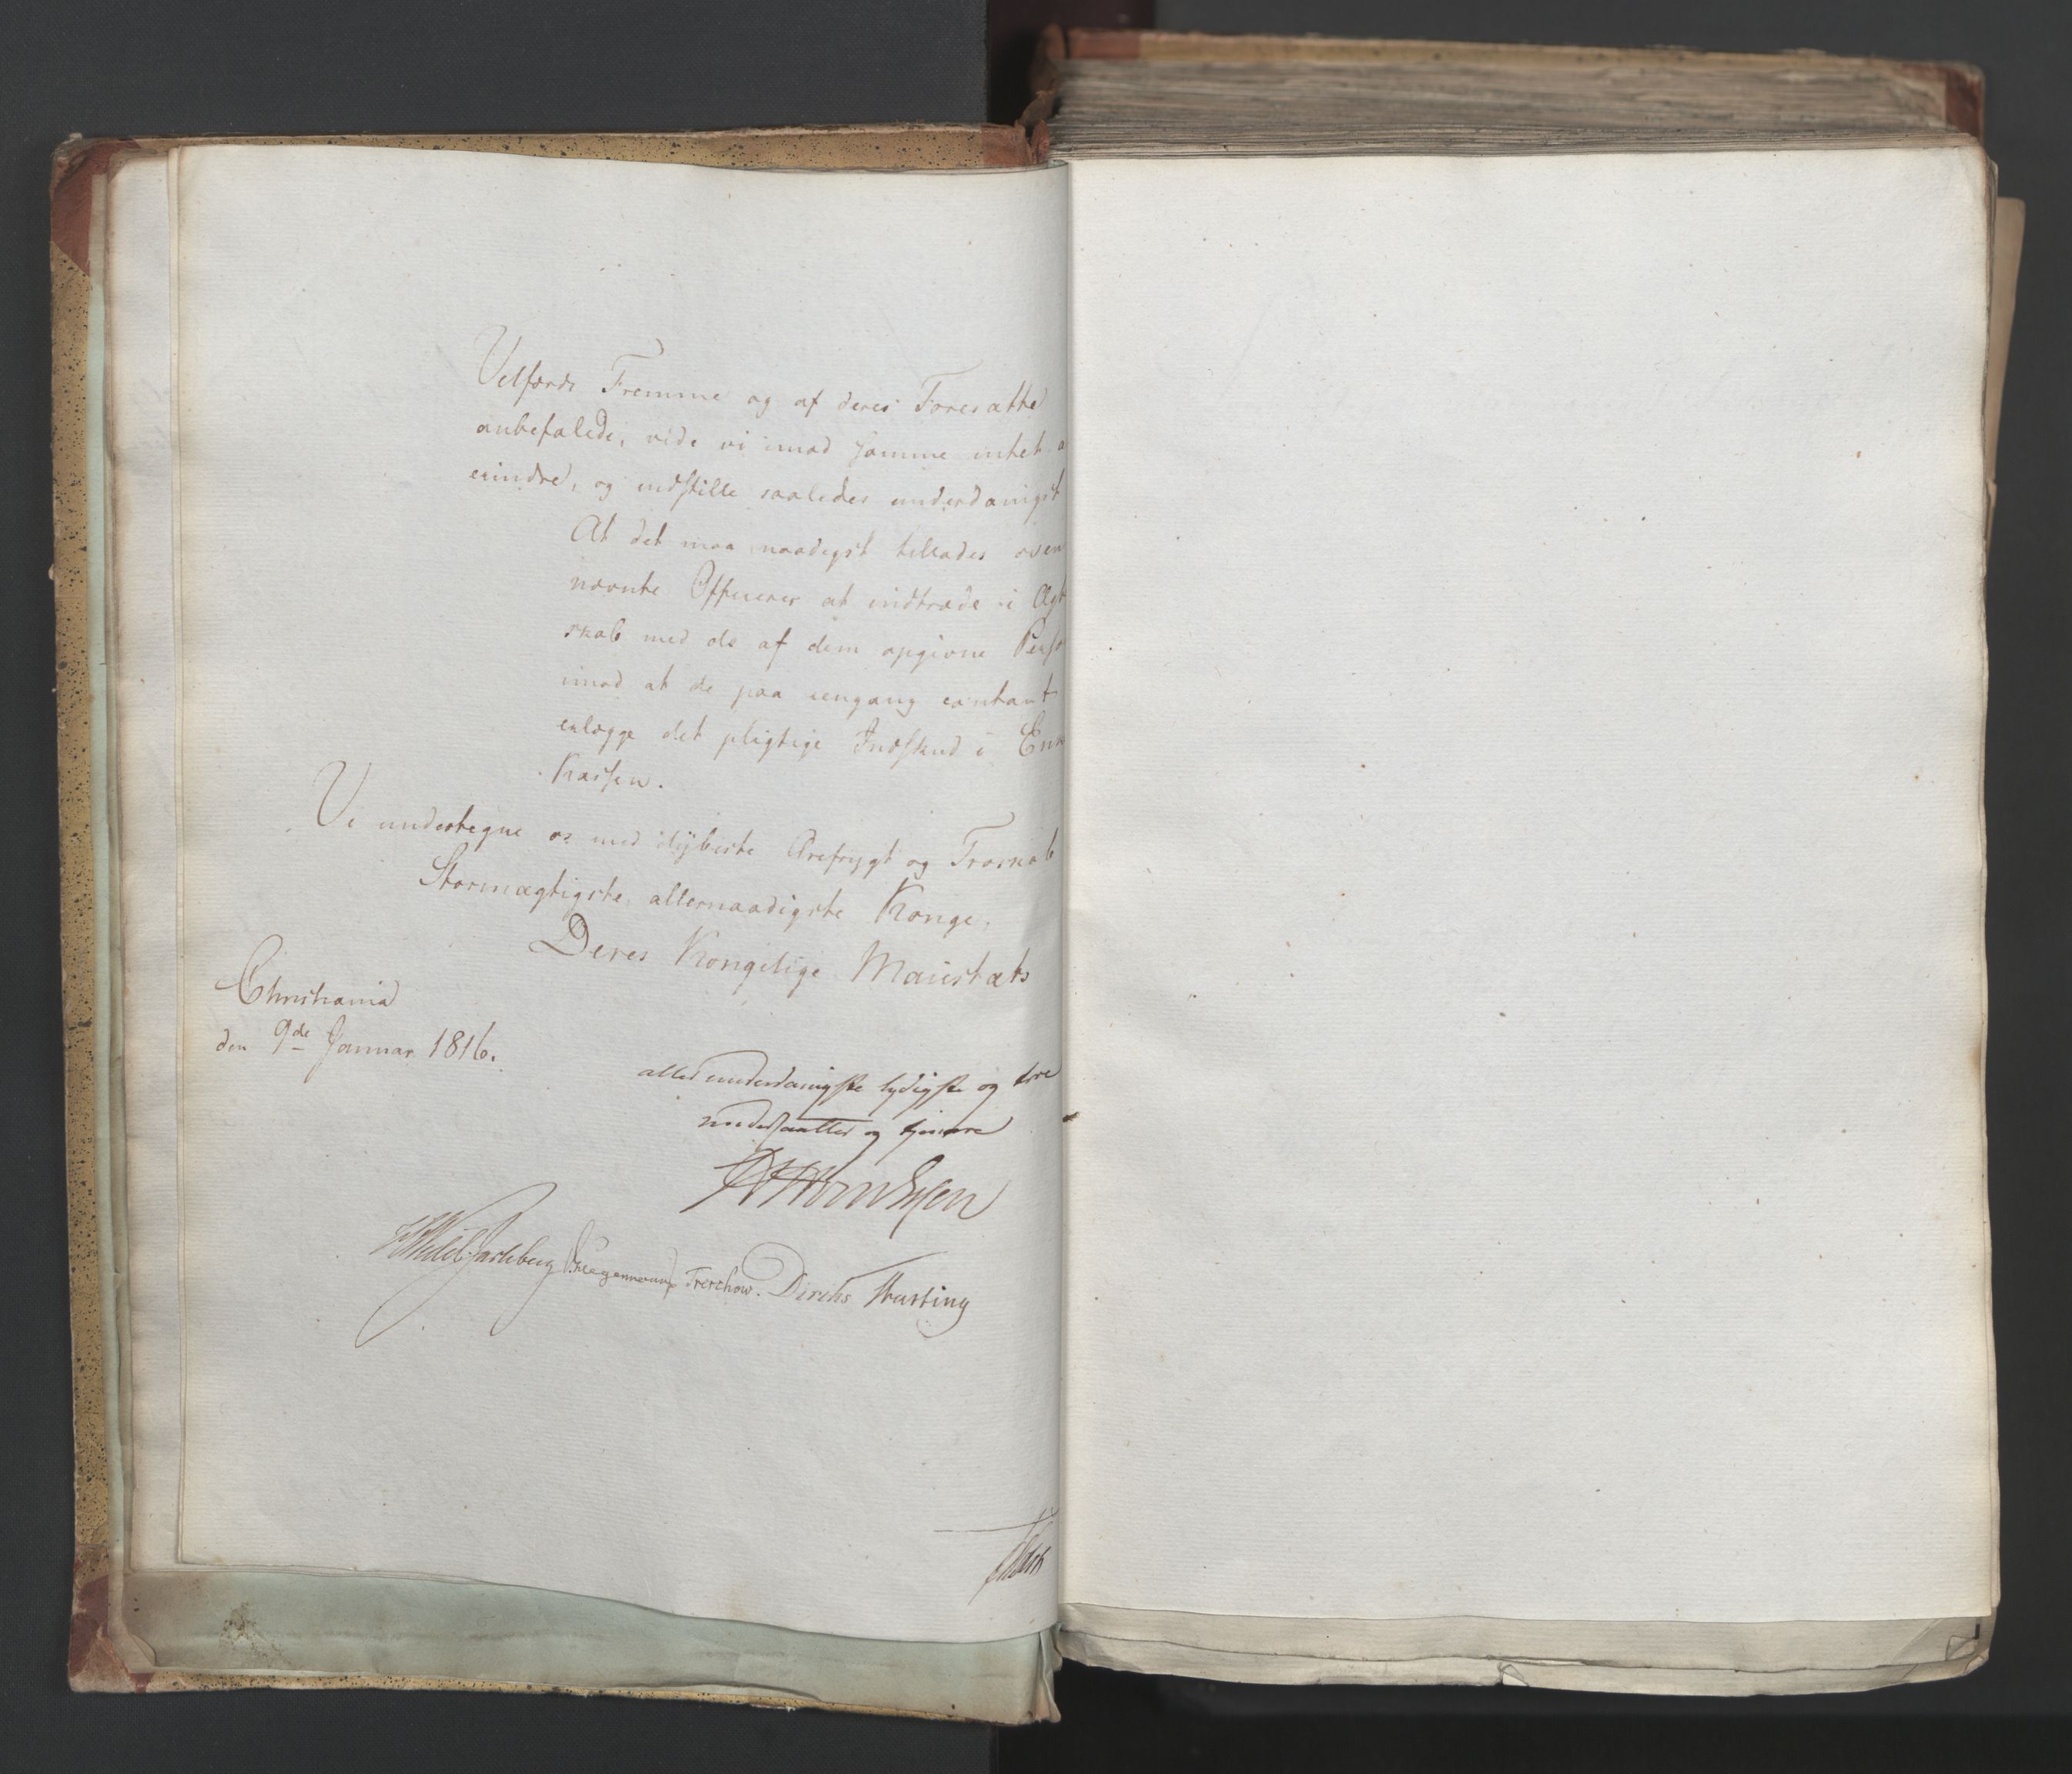 Velfærds Fremme og af deres Foresatte
anbefalede, vide vi imod samme intet a
erindre, og indstille saaledes underdanigst
At det maa naadigst tillades oven
nævnte Officerer at indtræde i Ægt
skab med de af dem opgivne Perso
imod at de paa eengang contant
erlægge det pligtige Indskud i Enke
Kassen.
Vi undertegne os med dybeste Ærefrygt og Troskab
Stormægtigste, allernaadigste Konge,
Deres Kongelige Maiestæts
Christiania
den 9de Januar 1816.
allerunderdanigste lydigste og troe
undersaatter og tjenere
HWedel Jarlsberg Treschow. Diriks Hasting